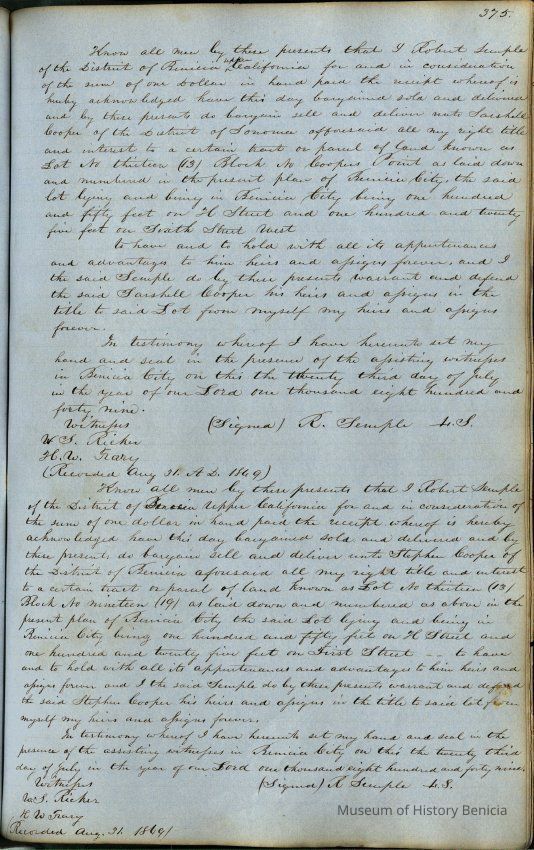 375.
Know all men by these presents that I Robert Semple
of the District of Benicia Upper California for and in consideration
of the sum of one Dollar in hand paid the receipt whereof is
hereby acknowledged have this day bargained sold and delivered
and by these presents do bargain sell and deliver unto Sarshell
Cooper of the District of Sonoma afforesaid all my right title
and interest to a certain tract or parcel of land known as
Lot No thirteen (13) Block No Coopers Point as laid down
and numbered in the present plan of Benicia City, the said
lot lying and being in Benicia City being one hundred
and fifty feet on H Street and one hundred and twenty
five feet on Sixth Street West
to have and to hold with all its appertenances
and advantages to him heirs and assigns forever, and I
the said Semple do by these presents warrant and defend
the said Sarshell Cooper his heirs and assigns in the
title to said Lot from myself my heirs and assigns
forever.
In testimony whereof I have hereunto set my
hand and seal in the presence of the assisting witnesses
in Benicia City on this the twenty third day of July
in the year of our Lord one thousand eight hundred and
forty nine.
Witness (Signed) R. Semple L.S.
W S. Ricker
H. W. Trary
(Recorded Aug 31. A.D. 1869)
Know all men by these presents that I Robert Semple
of the District of Upper California for and in consideration of
the sum of one dollar in hand paid the receipt whereof is hereby
acknowledged have this day bargained sold and delivered and by
these presents do bargain sell and deliver unto Stephen Cooper of
the District of Benicia afouesaid all my right title and interest
to a certain tract or parcel of land known as Lot No thirteen (13)
Block No nineteen (19) as laid down and numbered as above in the
present plan of Benicia City the said Lot lying and being in
Benicia City being one hundred and fifty feet on H Street and
one hundred and twenty five feet on First Street -- to have
and to hold with all its appertenances and advantages to him heirs and
assigns forever and I the said Semple do by these presents warrant and defend
the said Stephen Cooper his heirs and assigns in the title to said lot from
myself my heirs and assigns forever.
In testimony whereof I have hereunto set my hand and seal in the
presence of the assisting witnesses in Benicia City on this the twenty third
day of July in the year of our Lord one thousand eight hundred and forty nine.
Witness (Signed) R Semple L.S.
W S. Ricker
H W Trary
(Recorded Aug. 31. 1869)
Museum of History Benicia